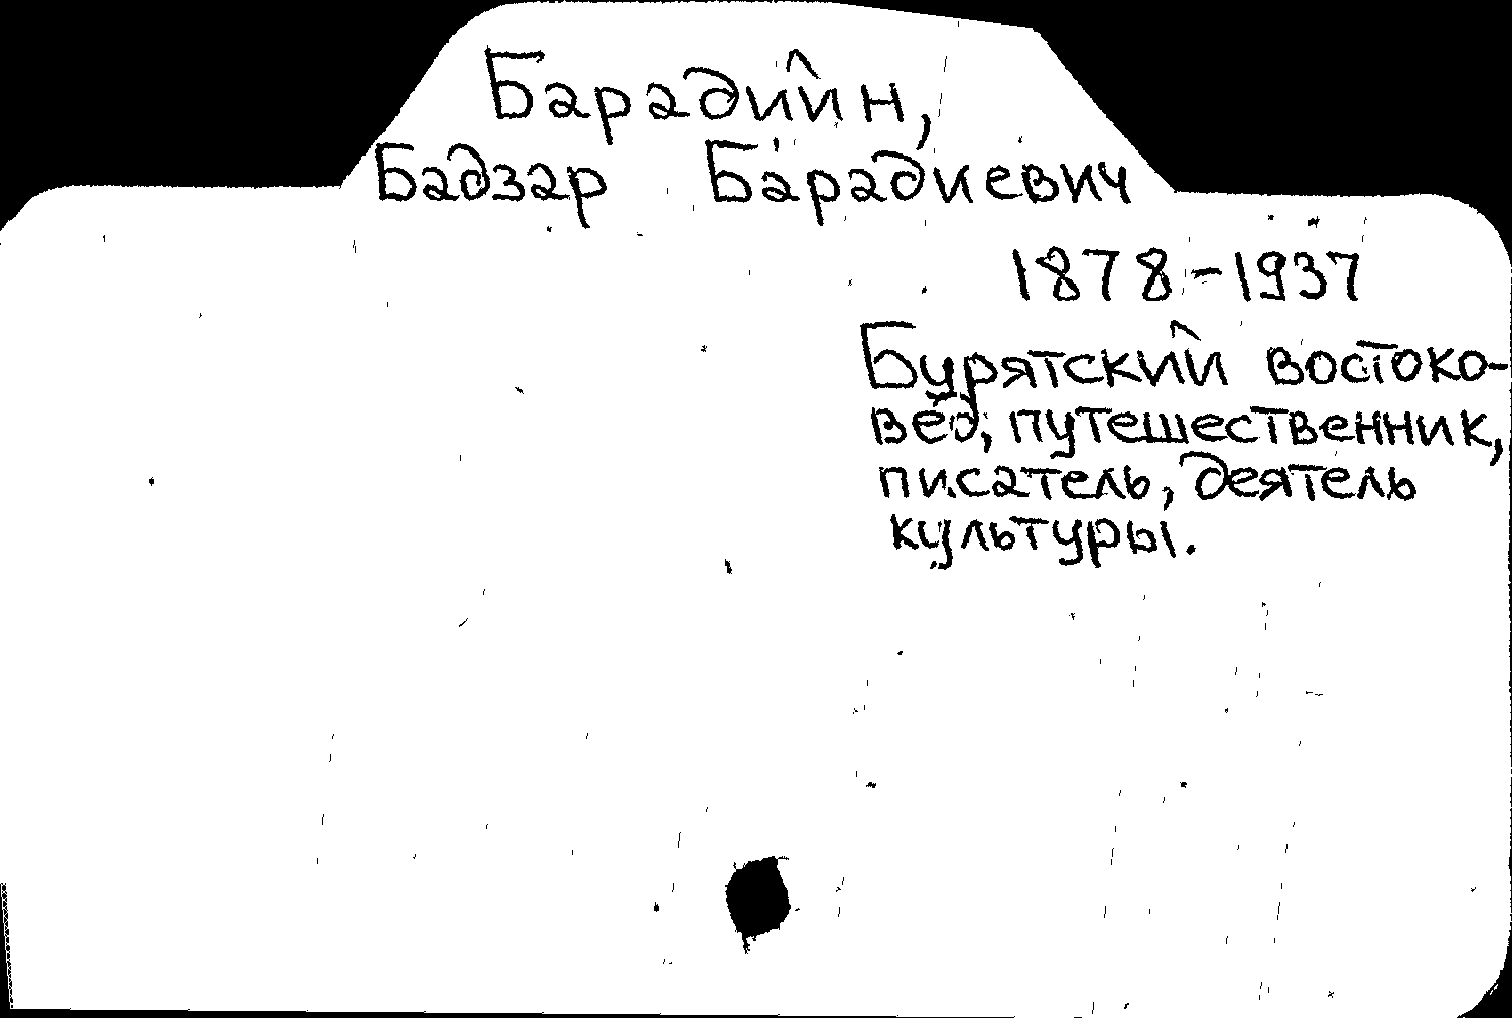 Барадийн,
Бадзар Барадиевич
1878-1937
Бурятский востоко-
вед, путешественник,
писатель, деятель
культуры.